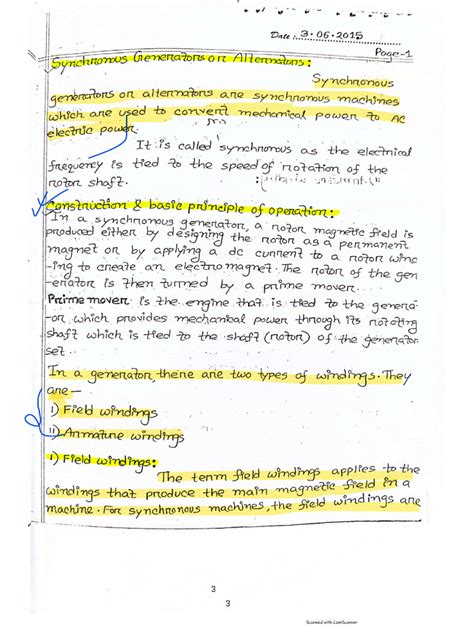 Date : 3.06.2015
Page-1
Synchronous Generators or Alternators:
Synchronous
generators or alternators are synchronous machines
which are used to convert mechanical power to AC
electric power.
It is called synchronous as the electrical
frequency is tied to the speed of rotation of the
rotor shaft.
Construction & basic principle of operation:
In a synchronous generator, a rotor magnetic field is
produced either by designing the rotor as a permanent
magnet or by applying a dc current to a rotor winc
-ing to create an electromagnet. The rotor of the gen
-erator is then turned by a prime mover.
Prime mover is the engine that is tied to the genera-
-or which provides mechanical power through its rotating
shaft which is tied to the shaft (rotor) of the generator
set.
In a generator, there are two types of windings. They
are—
i) Field windings
ii) Armature windings
i) Field windings:
The term field windings applies to the
windings that produce the main magnetic field in a
machine. For synchronous machines, the field windings are
3
3
Scanned with CamScanner